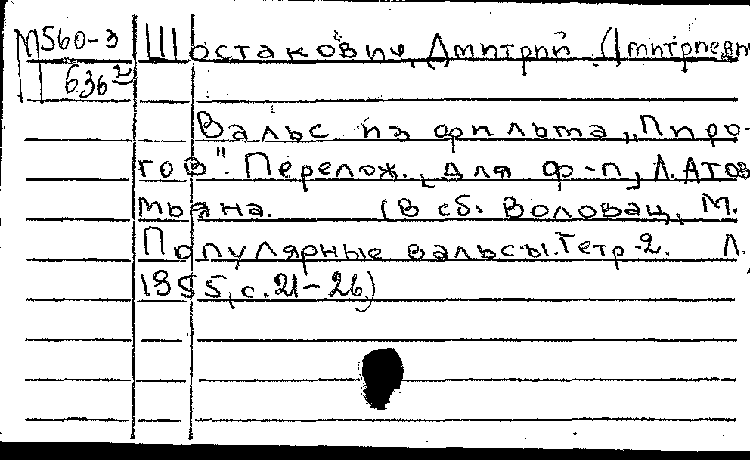 М560-3 Шостакович, Дмитрий Дмитриевич
636²
Вальс из фильма „Пиро-
гов". Перелож. для ф-п, Л. Атов
мьяна. (В сб. Воловац, М.
Популярные вальсы. Тетр. 2. Л.,
1955, с. 21-26)